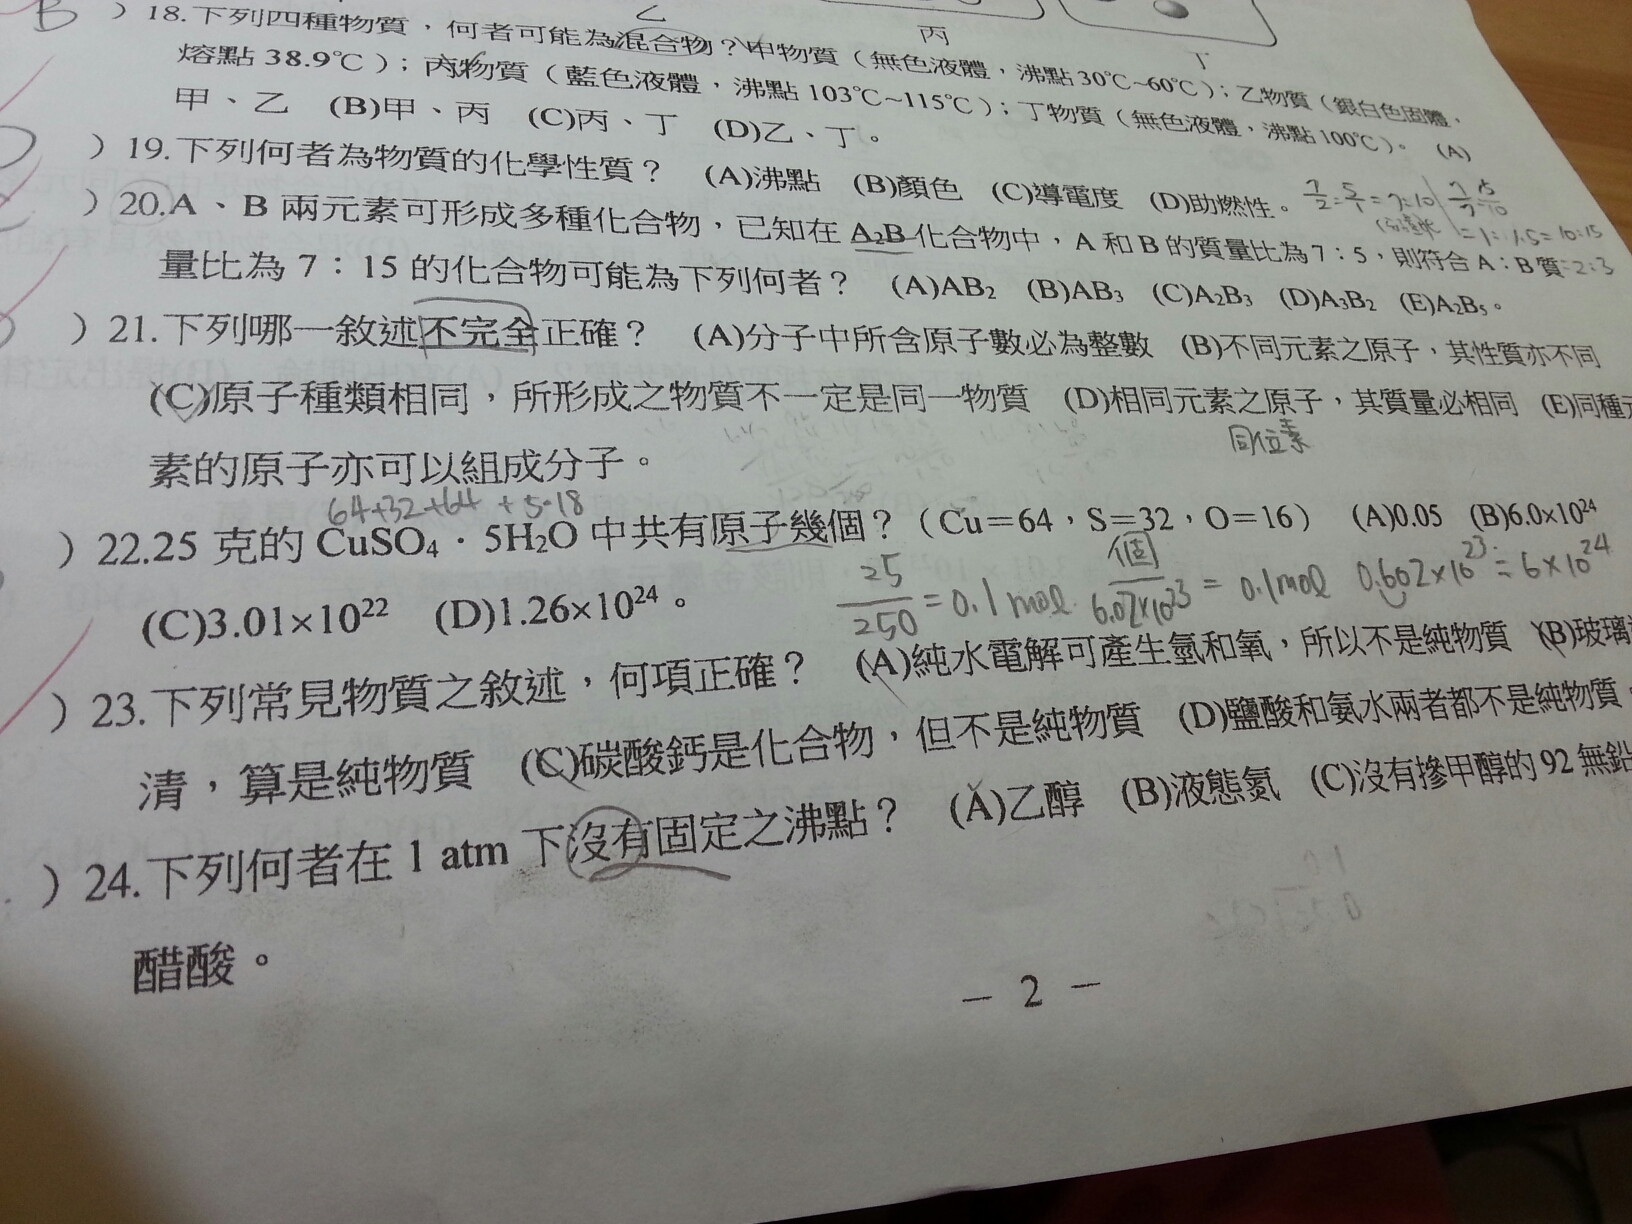 乙
丙
丁
B ) 18.下列四種物質，何者可能為混合物？甲物質（無色液體，沸點30℃~60℃）；乙物質（銀白色固體，
熔點 38.9℃）；丙物質（藍色液體，沸點 103℃~115℃）；丁物質（無色液體，沸點100℃）。 (A)
甲、乙 (B)甲、丙 (C)丙、丁 (D)乙、丁。
) 19.下列何者為物質的化學性質？ (A)沸點 (B)顏色 (C)導電度 (D)助燃性。
7/2 = 5/1 = 7:10
= 1:1.5 = 10:15
) 20.A、B 兩元素可形成多種化合物，已知在 A₂B 化合物中，A 和 B 的質量比為 7：5，則符合 A：B 質 =2:3
量比為 7：15 的化合物可能為下列何者？ (A)AB₂ (B)AB₃ (C)A₂B₃ (D)A₃B₂ (E)A₂B₅。
) 21.下列哪一敘述不完全正確？ (A)分子中所含原子數必為整數 (B)不同元素之原子，其性質亦不同
(C)原子種類相同，所形成之物質不一定是同一物質 (D)相同元素之原子，其質量必相同 (E)同種元
同位素
素的原子亦可以組成分子。
64+32+64 +5·18
) 22.25 克的 CuSO₄．5H₂O 中共有原子幾個？（Cu＝64，S＝32，O＝16） (A)0.05 (B)6.0×10²⁴
(C)3.01×10²² (D)1.26×10²⁴。
25/250 = 0.1mol. 個/6.02×10²³ = 0.1mol 0.602×10²³ ≒ 6×10²⁴
) 23.下列常見物質之敘述，何項正確？ (A)純水電解可產生氫和氧，所以不是純物質 (B)玻璃
清，算是純物質 (C)碳酸鈣是化合物，但不是純物質 (D)鹽酸和氨水兩者都不是純物質。
) 24.下列何者在 1 atm 下沒有固定之沸點？ (A)乙醇 (B)液態氮 (C)沒有摻甲醇的 92 無鉛
醋酸。
－ 2 －